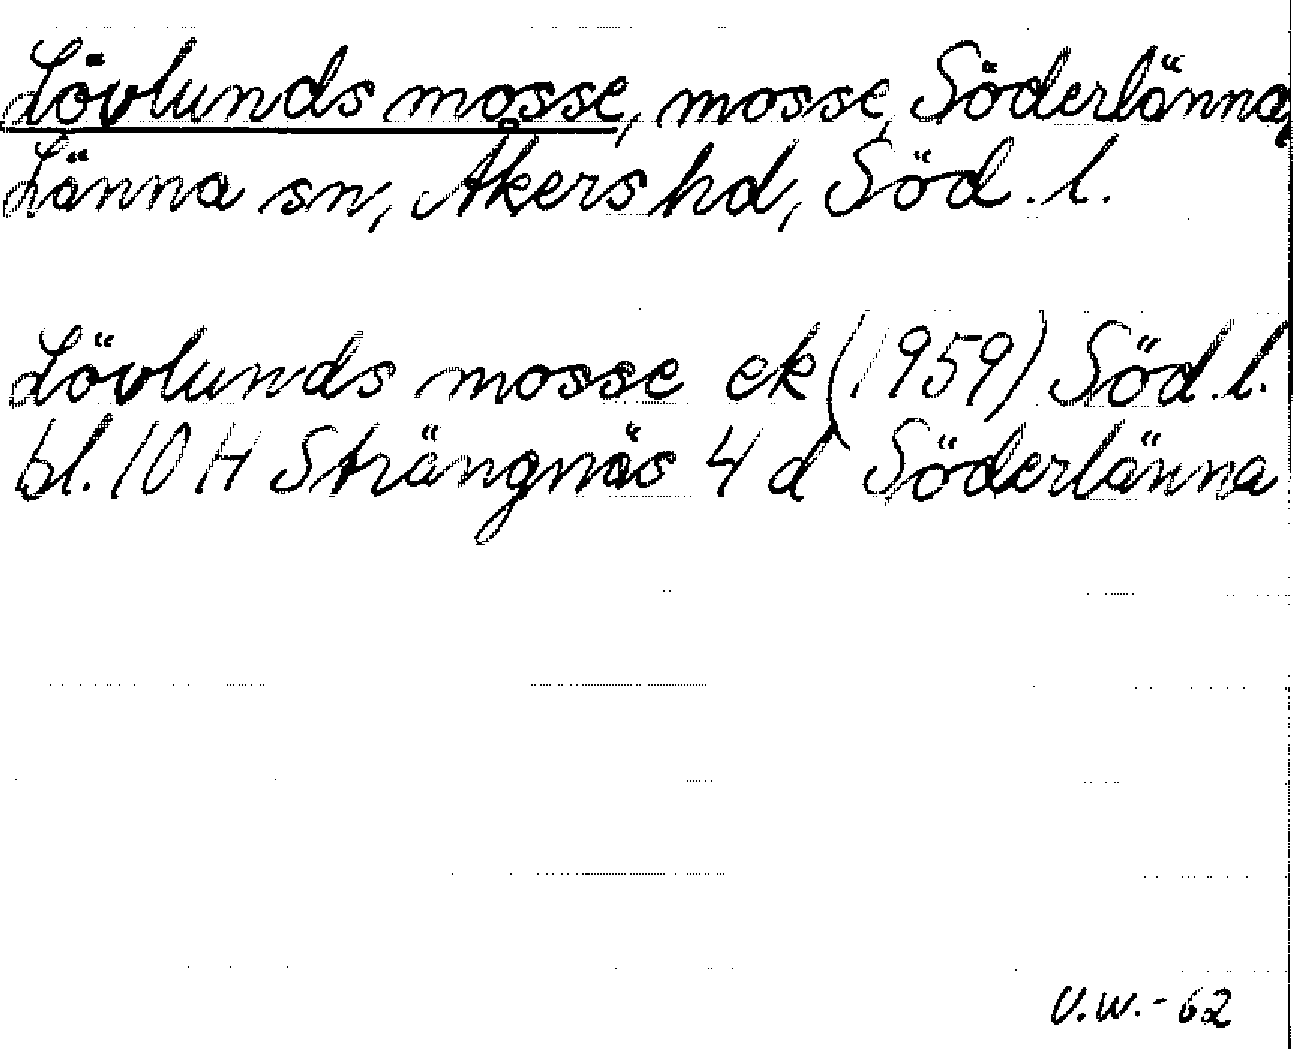 Lövlunds mosse, mosse, Söderlänna,
Länna sn, Åkers hd, Söd. l.
Lövlunds mosse ek (1959) Söd. l.
bl. 10 H Strängnäs 4 d Söderlänna
U.W.-62